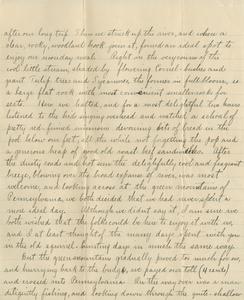 after our long trip. Then we struck up the river, and where a
clear, rocky, woodland brook joins it, found an ideal spot to
enjoy our noonday meal. Right in the very centre of the
cool little stream, shaded by flowering Cornel-bushes and
giant Tulip trees and Sycamores, the former in full bloom, is
a large flat rock with most convenient smaller rocks for
seats. Here we halted, and for a most delightful two hours
listened to the birds singing overhead and watched a school of
pretty red-finned minnows devouring bits of bread in the
pool below our feet, all the while not forgetting the pop and
a generous heap of good old roast beef sandwiches. After
the dusty roads and hot sun the delightfully cool and fragrant
breeze, blowing over the broad expanse of river, was most
welcome, and looking across at the green mountains of
Pennsylvania, we both decided that we had never spent a
more ideal day. Although we didn't say it, I am sure we
both wished that the folks could be here to enjoy it with us,
and I at least thought of the many days spent with you
in the old squirrel-hunting days in much the same way.
But the green mountains gradually proved too much for us,
and hurrying back to the bridge, we payed our toll (4 cents)
and crossed into Pennsylvania. On the way over we
delightedly fishing, and looking down through the quite shallow